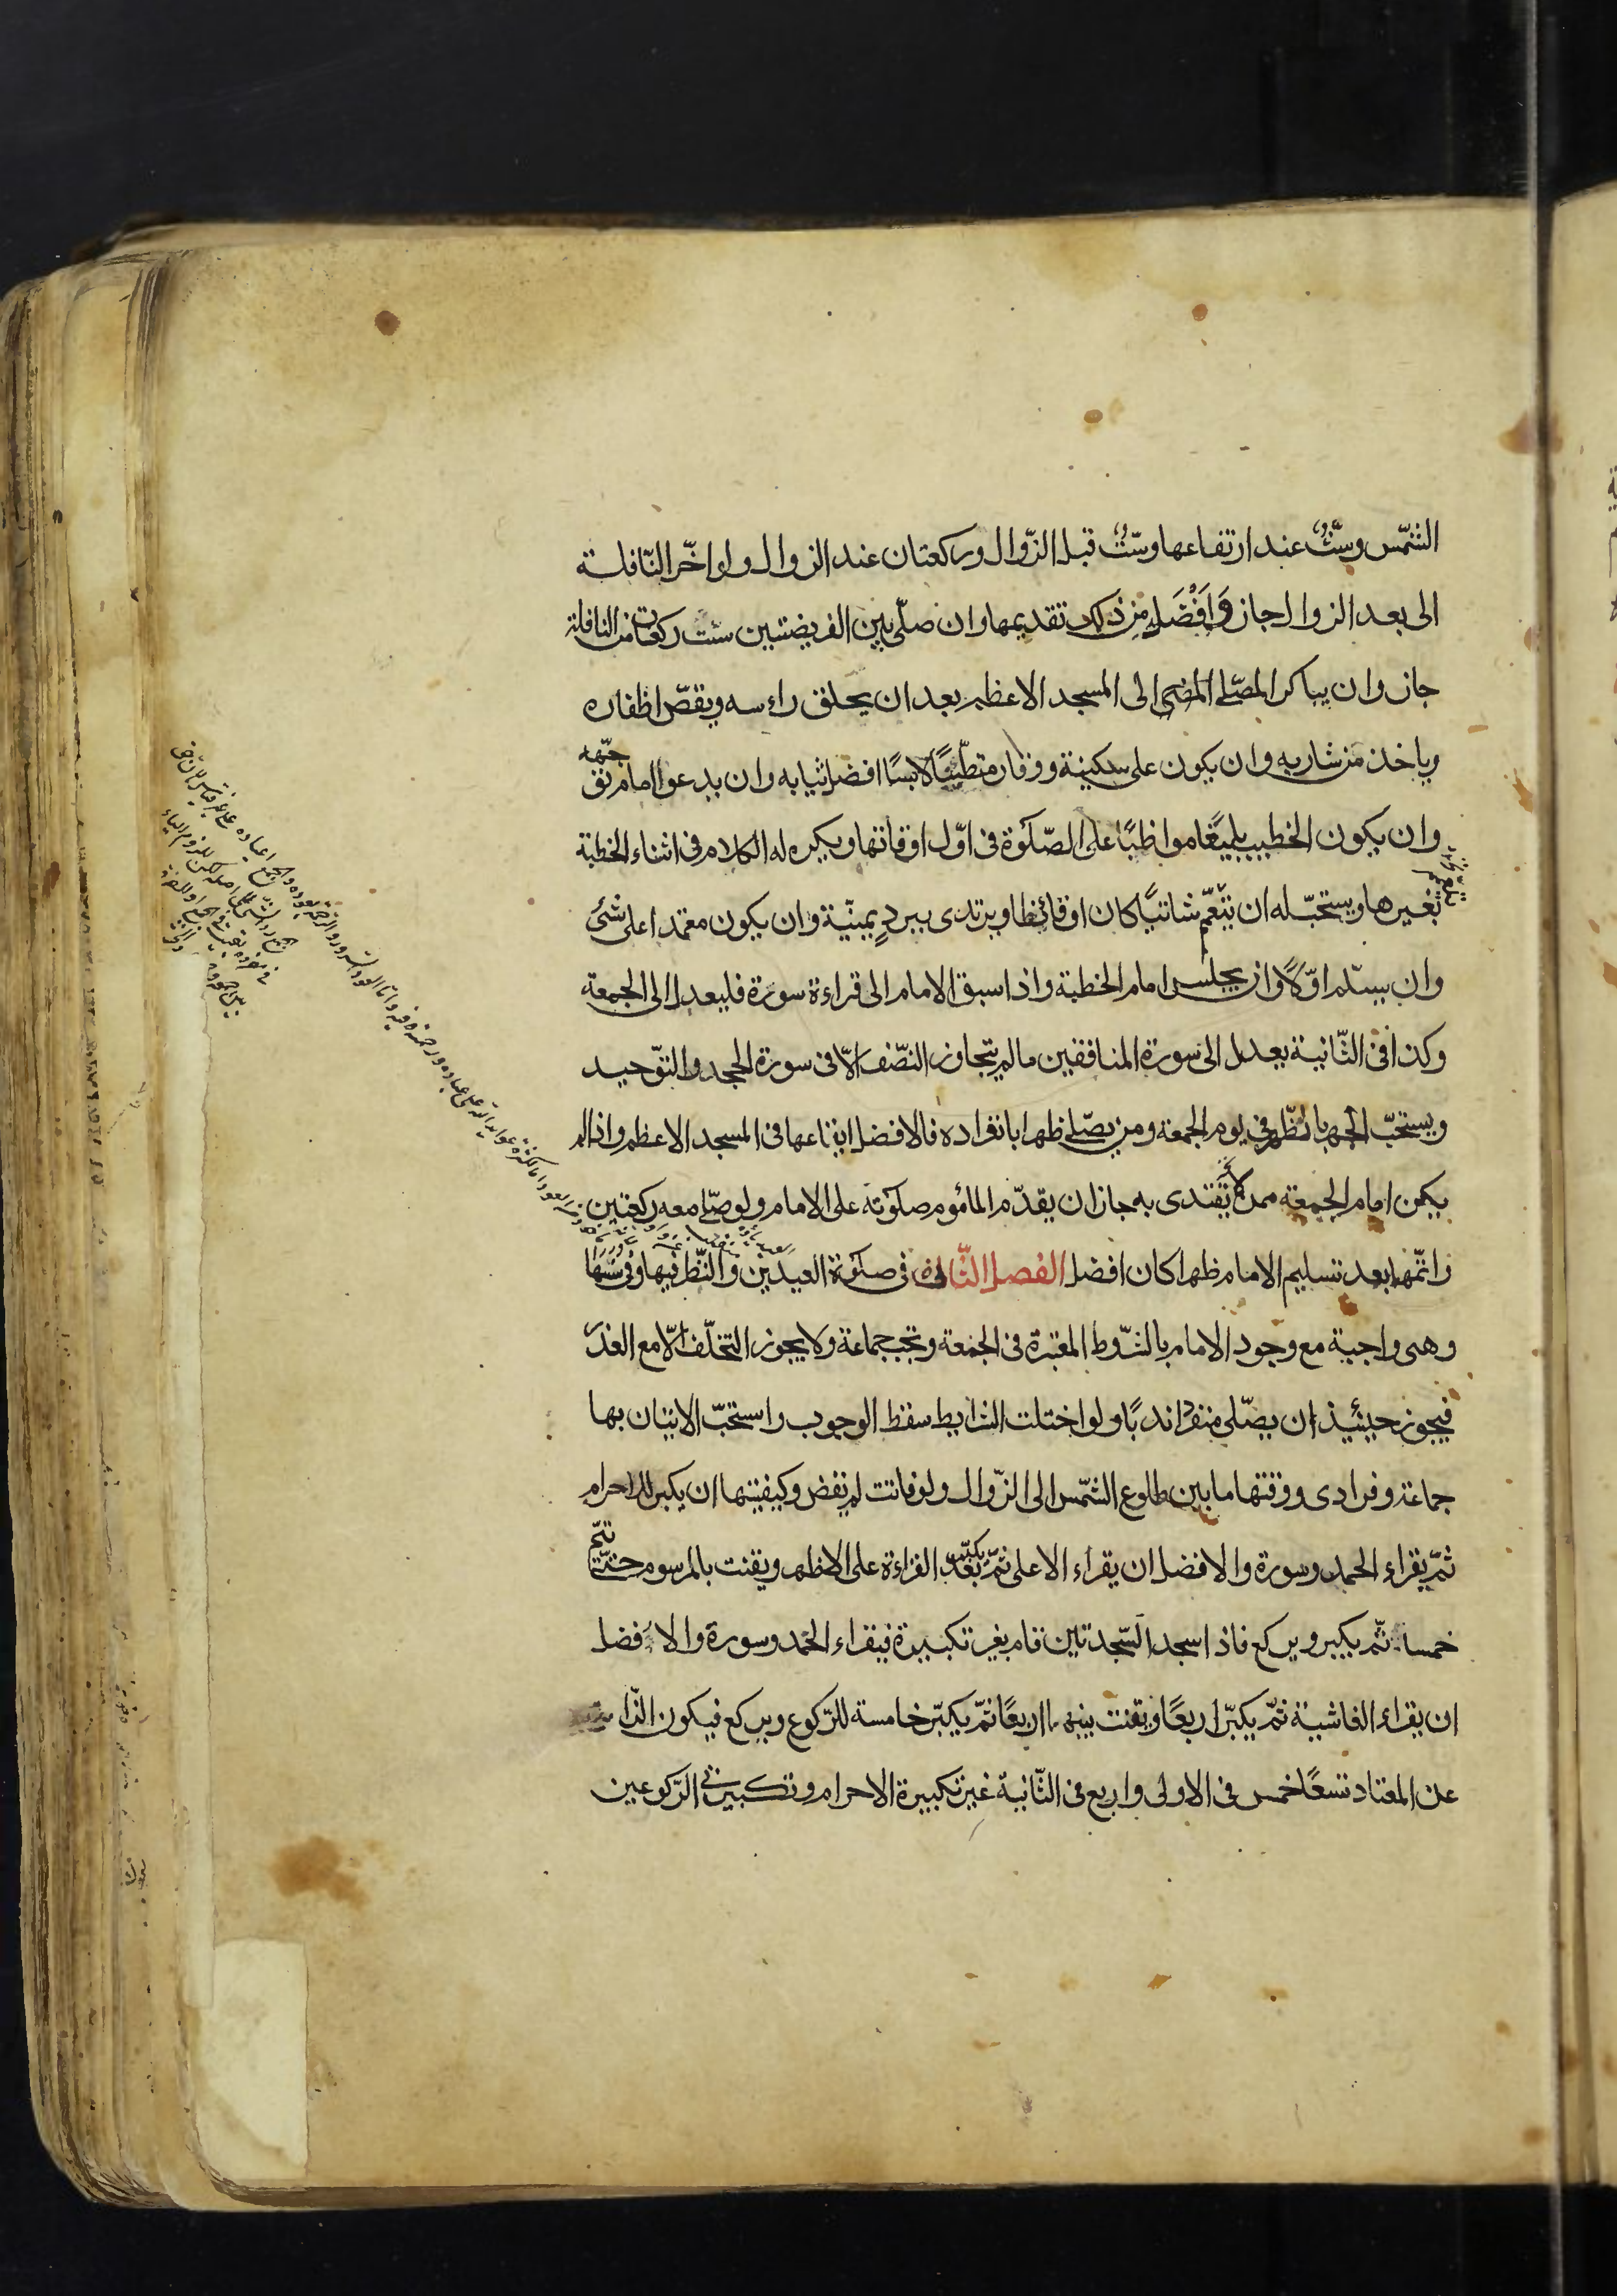 الشّمس وستٌّ عند ارتفاعها وستٌّ قبل الزّوال وركعتان عند الزوال ولو اخّر النّافلة
الى بعد الزوال جاز وَاَفْضَل مِن ذلك تقديمها وان صلّى بين الفريضتين ستّ ركعات من النافلة
جاز وان يباكر المصّلى المضى الى المسجد الاعظم بعد ان يحلق راءسه ويقصّ اظفاره
وياخذ من شاربه وان يكون على سكينة ووقار متطيّبًا لابسًا افضل ثيابه وان يدعو امام توجّهه
وان يكون الخطيب بليغًا مواظبًا على الصّلوة فى اوّل اوقاتها ويكره له الكلام فى اثناء الخطبة
بغيرها ويستحبّ له ان يتعمّم شاتيًا كان او قائظا ويرتدى ببردٍ يمنيّة وان يكون معتمدا على شئ
وان يسلّم اوّلًا وان يجلس امام الخطبة واذا سبق الامام الى قراءة سورة فليعدل الى الجمعة
وكذا فى الثّانية يعدل الى سورة المنافقين ما لم يتجاوز النصّف الّا فى سورة الجحد والتوّحيد
ويستحبّ الجهر بالظّهر فى يوم الجمعة ومن يصّلى ظهرا بانفراده فالافضل ايقاعها فى المسجد الاعظم واذا لم
يكن امام الجمعة ممن لا يقتدى به جاز ان يقدّم المأموم صلوته على الامام ولو صّلى معه ركعتين
واتمّهما بعد تسليم الامام ظهرا كان افضل الفصل الثّانى فى صلوة العيدين والنّظر فيها وفى سُنَنِهَا
وهى واجبة مع وجود الامام بالشّروط المعتبرة فى الجمعة وتجب جماعة ولا يجوز التخلّف الّا مع العذر
فيجوز حينئيذ ان يصّلى منفردا ندبًا ولو اختلت الشرايط سقط الوجوب واستحبّ الاتيان بها
جماعة وفرادى ووقتها ما بين طلوع الشّمس الى الزّوال ولو فاتت لم تقض وكيفيتها ان يكبر للاحرام
ثمّ يقراء الحمد وسورة والافضل ان يقراء الاعلى ثمّ يكبّر بعد القراءة على الاظهر ويقنت بالمرسوم حتّى تتمّ
خمسا ثمّ يكبر ويركع فاذا سجد السّجدتين قام بغير تكبيرة فيقراء الحمد وسورة والا فضل
ان يقراء الغاشية ثمّ يكبّر اربعًا ويقنت بينهما اربعًا ثمّ يكبّر خامسة للرّكوع ويركع فيكون الزّايد
عن المعتاد تسعًا خمس فى الاولى واربع فى الثّانية غير تكبيرة الاحرام وتكبيرتى الرّكوعين